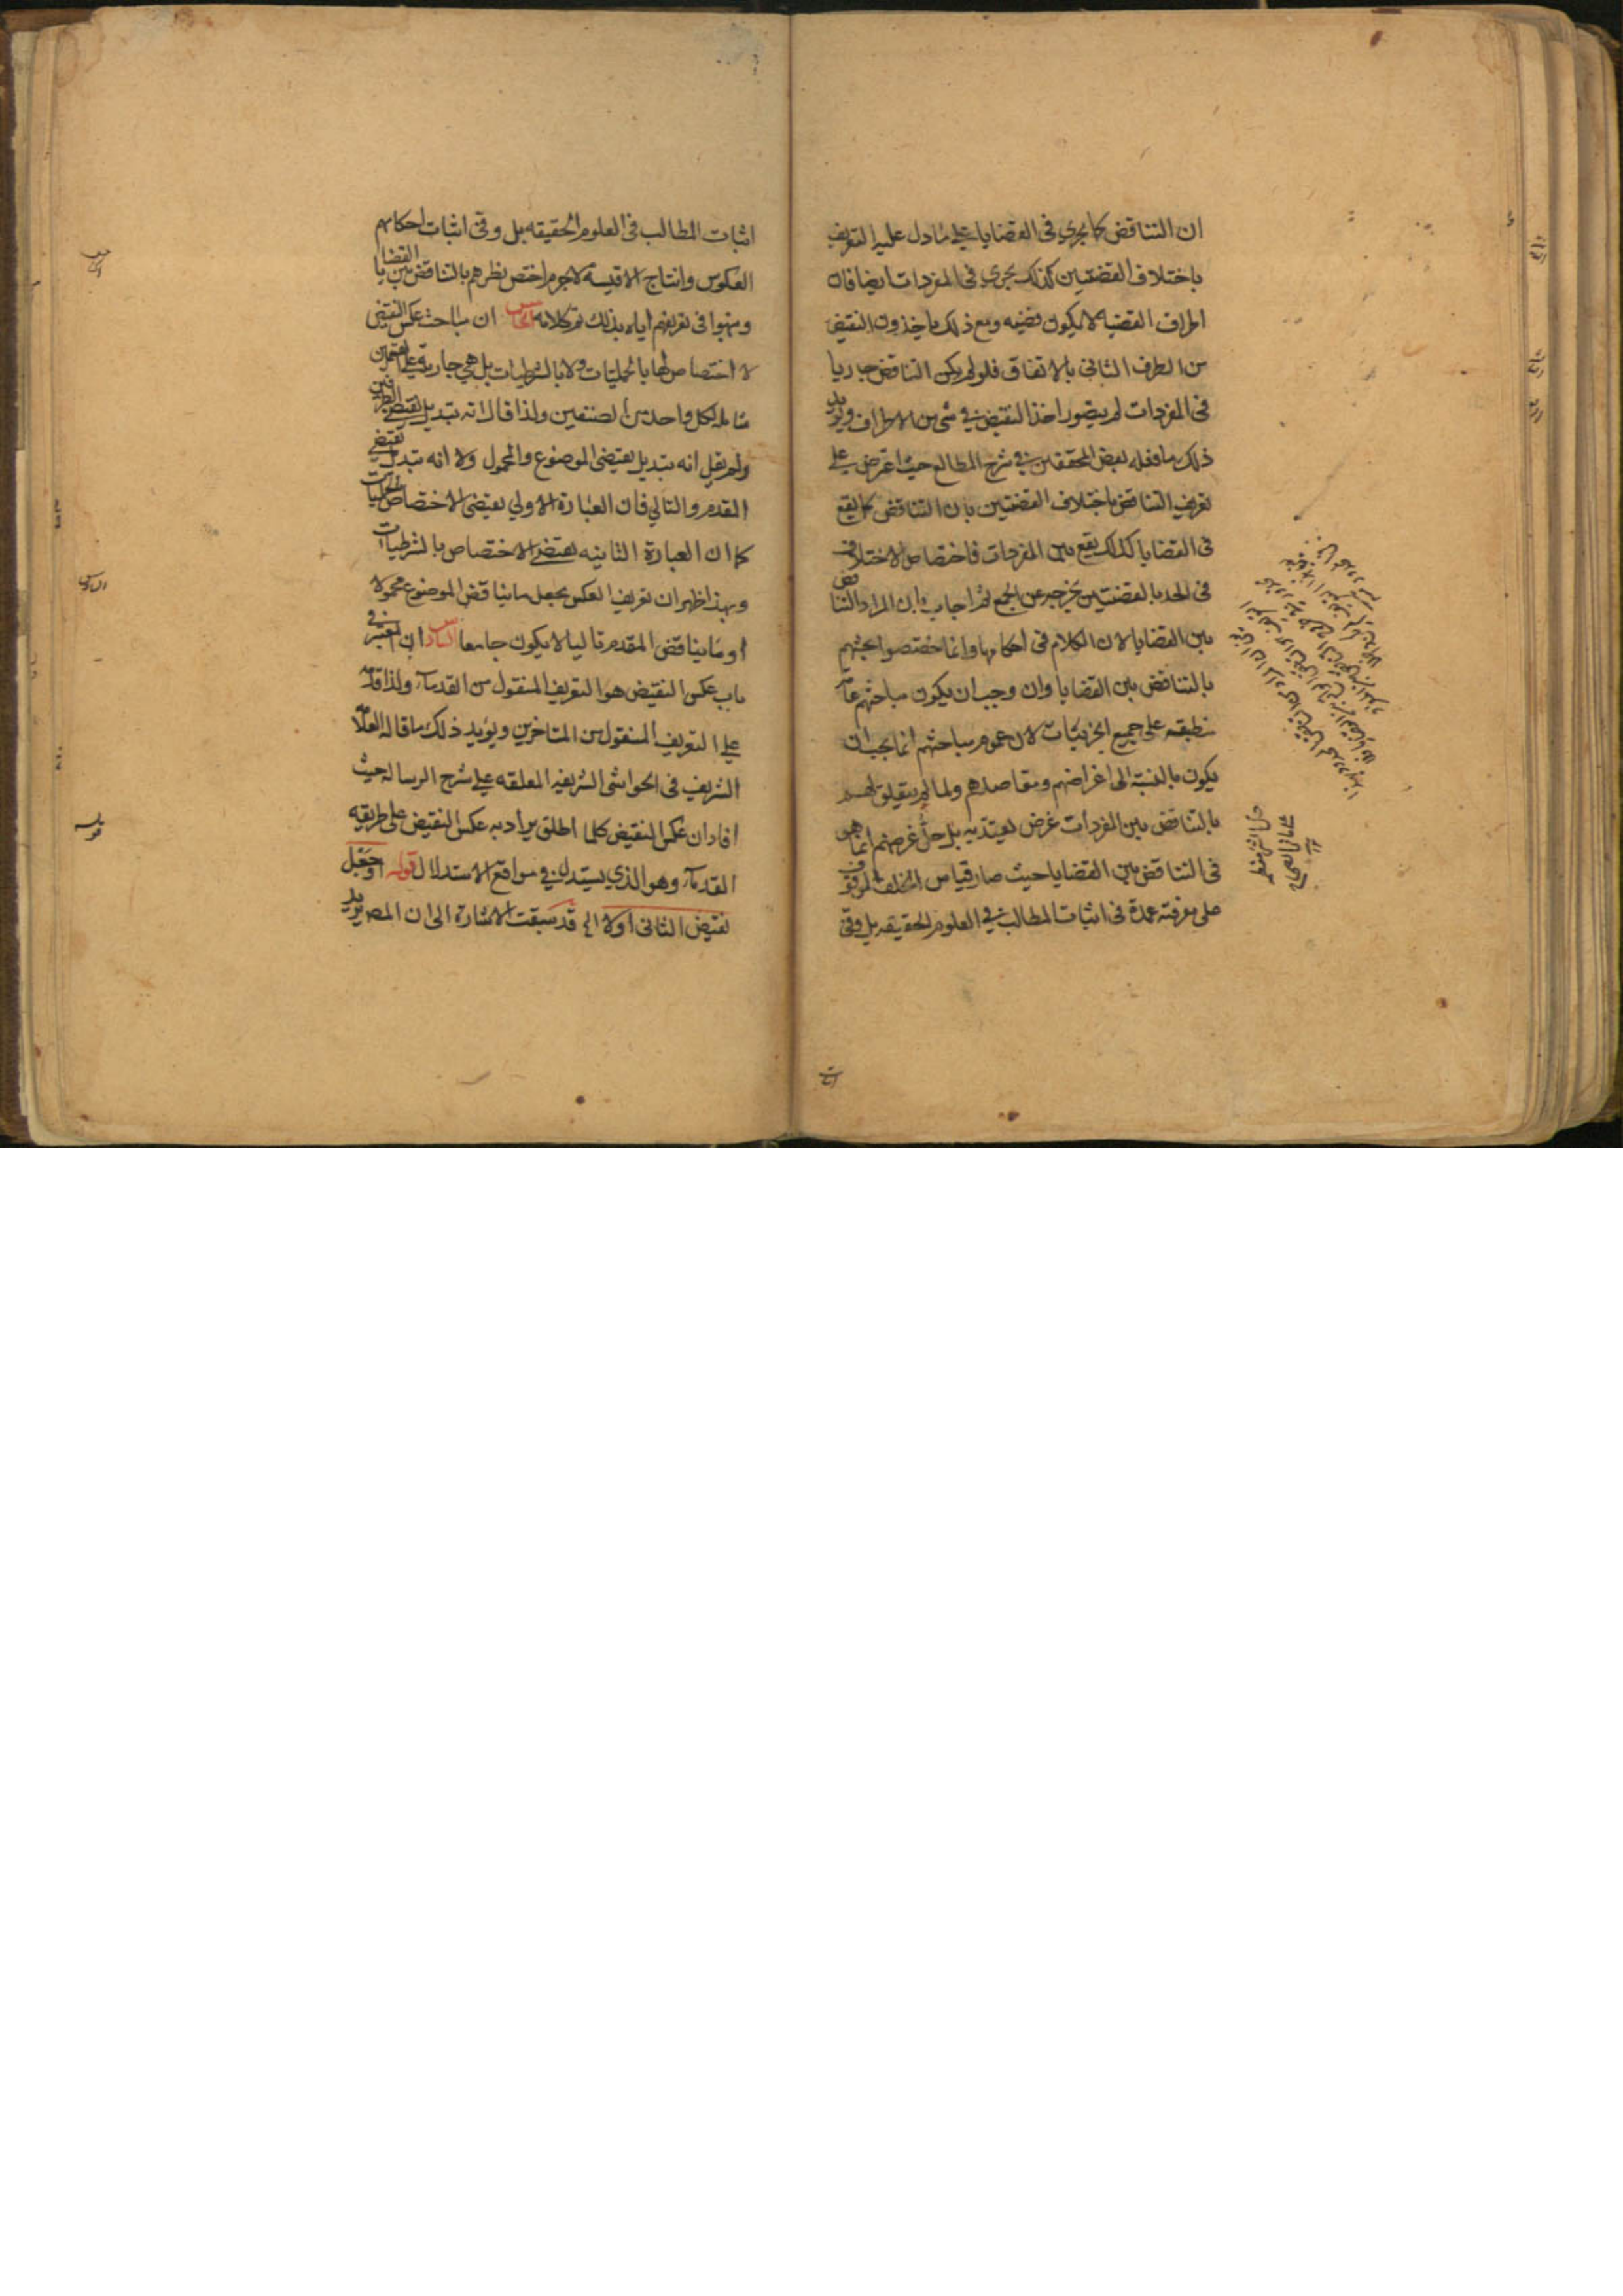 ان التناقض كما يجري في القضايا على ما دل عليه التعريف
باختلاف القضيتين كذلك يجري في المفردات ايضا فان
اطراف القضيه لا يكون قضيه ومع ذلك ياخذون النقيض
من الطرف الثاني بالاتفاق فلو لم يكن التناقض جاريا
في المفردات لم يتصور اخذ النقيض في شي من الاطراف ويؤيد
ذلك ما فعله بعض المحققين في شرح المطالع حيث اعترض على
تعريف التناقض باختلاف القضيتين بان التناقض كما يقع
في القضايا كذلك يقع بين المفردات فاختصاص الاختلاف
في الحد بالقضيتين يخرجه عن الجمع ثم اجاب بان المراد التناقض
بين القضايا لان الكلام في احكامها وانما خصصوا بحثهم
بالتناقض بين القضايا وان وجب ان يكون مباحثهم عامة
منطبقه على جميع الجزئيات لان عموم مباحثهم انما يجب ان
يكون بالنسبة الى اغراضهم ومقاصدهم ولما لم يتعلق لهم
بالتناقض بين المفردات غرض يعتد به بل جل غرضهم انما هو
في التناقض بين القضايا حيث صار قياس الخلف الموقوف
على معرفته عمدة في اثبات المطالب في العلوم الحقيقيه بل وفي
اثبات المطالب في العلوم الحقيقه بل وفي اثبات احكام
العكوس وانتاج الاقيسة لاجرم اختص نظرهم بالتناقض بين القضايا
ونبهوا في تعريفهم اياه بذلك تم كلامه الخامس ان مباحث عكس النقيض
لا اختصاص لها بالحمليات ولا بالشرطيات بل هي جارية في القسمين
شاملة لكل واحد من الصنفين ولذا قال انه تبديل نقيضي الطرفين
ولم يقل انه تبديل نقيضي الموضوع والمحمول ولا انه تبديل نقيضي
المقدم والتالي فان العبارة الاولي يقتضي الاختصاص بالحمليات
كما ان العبارة الثانيه يقتضي الاختصاص بالشرطيات
وبهذا ظهر ان تعريف العكس بجعل ما يناقض الموضوع محمولا
او ما يناقض المقدم تاليا لا يكون جامعا السادس ان المعتبر في
باب عكس النقيض هو التعريف المنقول من القدماء ولذا قدمه
على التعريف المنقول من المتاخرين ويؤيد ذلك ما قاله العلامة
الشريف في الحواشي الشريفيه المعلقه على شرح الرسالة حيث
افاد ان عكس النقيض كلما اطلق يراد به عكس النقيض على طريقه
القدماء وهو الذي يستدل في مواقع الاستدلال قوله او جعل
نقيض الثاني اولا الخ قد سبقت الاشارة الى ان المص يريد